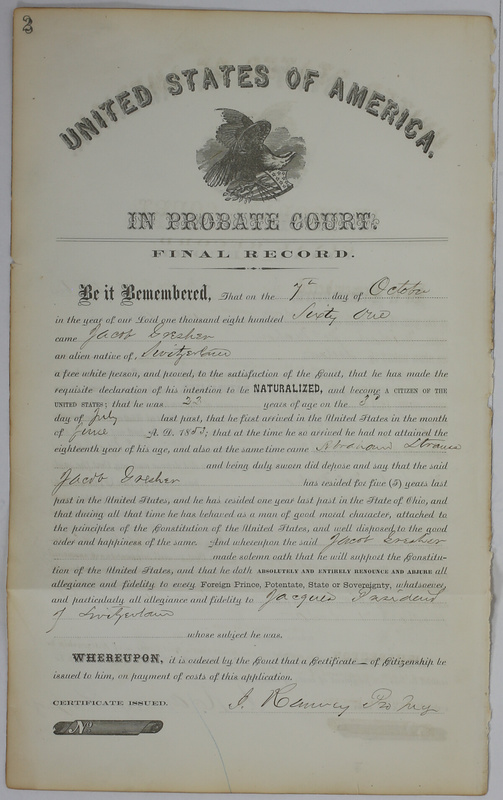 2
UNITED STATES OF AMERICA.
IN PROBATE COURT.
FINAL RECORD.
Be it Remembered, That on the 7th day of October
in the year of our Lord one thousand eight hundred Sixty One
came Jacob Gresher
an alien native of, Switzerland
a free white person, and proved, to the satisfaction of the Court, that he has made the
requisite declaration of his intention to be NATURALIZED, and become A CITIZEN OF THE
UNITED STATES; that he was 23 years of age on the 3d
day of July last past, that he first arrived in the United States in the month
of June A. D. 1853; that at the time he so arrived he had not attained the
eighteenth year of his age, and also at the same time came Abraham Strause
and being duly sworn did depose and say that the said
Jacob Gresher has resided for five (5) years last
past in the United States, and he has resided one year last past in the State of Ohio, and
that during all that time he has behaved as a man of good moral character, attached to
the principles of the Constitution of the United States, and well disposed to the good
order and happiness of the same. And whereupon the said Jacob Gresher
made solemn oath that he will support the Constitu-
tion of the United States, and that he doth ABSOLUTELY AND ENTIRELY RENOUNCE AND ABJURE all
allegiance and fidelity to every Foreign Prince, Potentate, State or Sovereignty, whatsoever,
and particularly all allegiance and fidelity to Jacques President
of Switzerland
whose subject he was.
WHEREUPON, it is ordered by the Court that a Certificate of Citizenship be
issued to him, on payment of costs of this application.
CERTIFICATE ISSUED.
No.